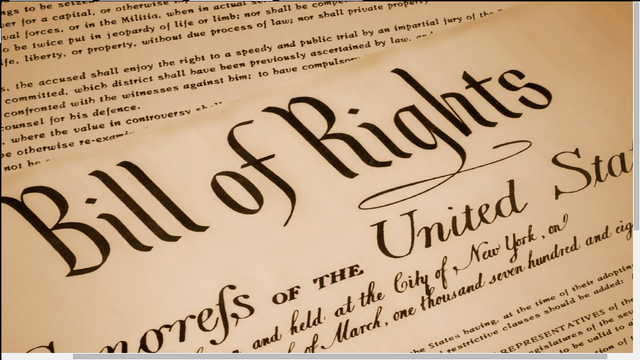 ngs to be seized.
or otherwise
val forces, or in the Militia, when in actual
to be twice put in jeopardy of life or limb; nor shall be
life, liberty, or property, without due process of law; nor shall private property
s, the accused shall enjoy the right to a speedy and public trial by an impartial jury of the
committed, which district shall have been previously ascertained by law, and
confronted with the witnesses against him; to have compulsory
counsel for his defence.
, where the value in controversy shall
be otherwise re-exami
not be
Bill of Rights
Congreſs OF THE United Sta
and held at the City of New York, on
of March, one thousand seven hundred and eig
the States having, at the time of their adoption
restrictive clauses should be added:
REPRESENTATIVES of the